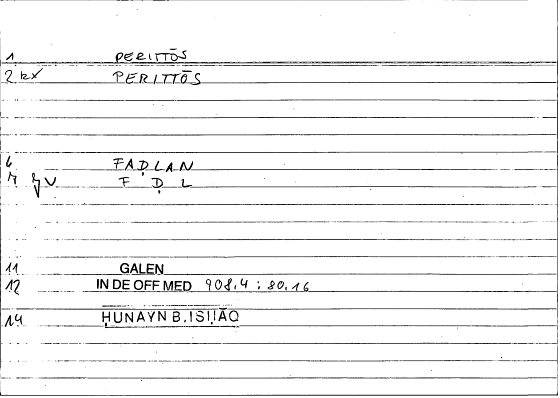 1 PERITTŌS
2 kx PERITTŌS
6 FAḌLAN
7 F Ḍ L
11 GALEN
12 IN DE OFF MED 908.4 : 80.16
14 ḤUNAYN B. ISḤĀQ